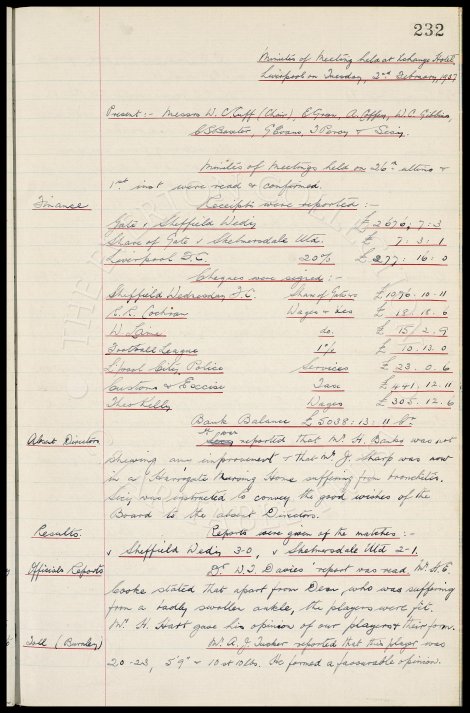 232
Minutes of Meeting held at Exchange Hotel,
Liverpool on Tuesday, 2nd February, 1937
Present :- Messrs W. C. Cuff (Chair), E. Green, A. Coffey, W. C. Gibbins,
C. S. Baxter, G. Evans, T. Percy & Secy.
Minutes of Meetings held on 26th ultimo &
1st inst were read & confirmed.
Finance Receipts were reported :-
Gate v Sheffield Wedy £2676 : 7 : 3
Share of Gate v Skelmersdale Utd. £ 7 : 3 : 1
Liverpool F.C. 20% £277 : 16 : 0
Cheques were signed :-
Sheffield Wednesday F.C. Share of Gate £1096 . 10 . 11
R. R. Cochran Wages & £181 . 18 . 6
W. do. £ 15 . 2 . 9
Football League 1% £ 10 . 13 . 0
L'pool City Police Services £ 23 . 0 . 6
Customs & Excise Tax £441 . 12 . 11
Theo Kelly Wages £305 . 12 . 6
Bank Balance £5038 : 13 : 11 Cr.
Absent Directors reported that Mr. H. Banks was not
shewing any improvement & that Mr. J. Sharp was now
in a Harrogate Nursing Home suffering from bronchitis.
Secy was instructed to convey the good wishes of the
Board to the absent Directors.
Results. Reports were given of the matches :-
v Sheffield Wedy 3-0, v Skelmersdale Utd 2-1.
Officials Reports Dr W. J. Davies' report was read. Mr. H. E.
Cooke stated that apart from Dean, who was suffering
from a badly swollen ankle, the players were fit.
Mr. H. Hatt gave his opinion of our players & their form.
(Burnley) Mr. A. J. Tucker reported that this player was
20-23, 5' 9" & 10 st 10 lbs. He formed a favourable opinion.